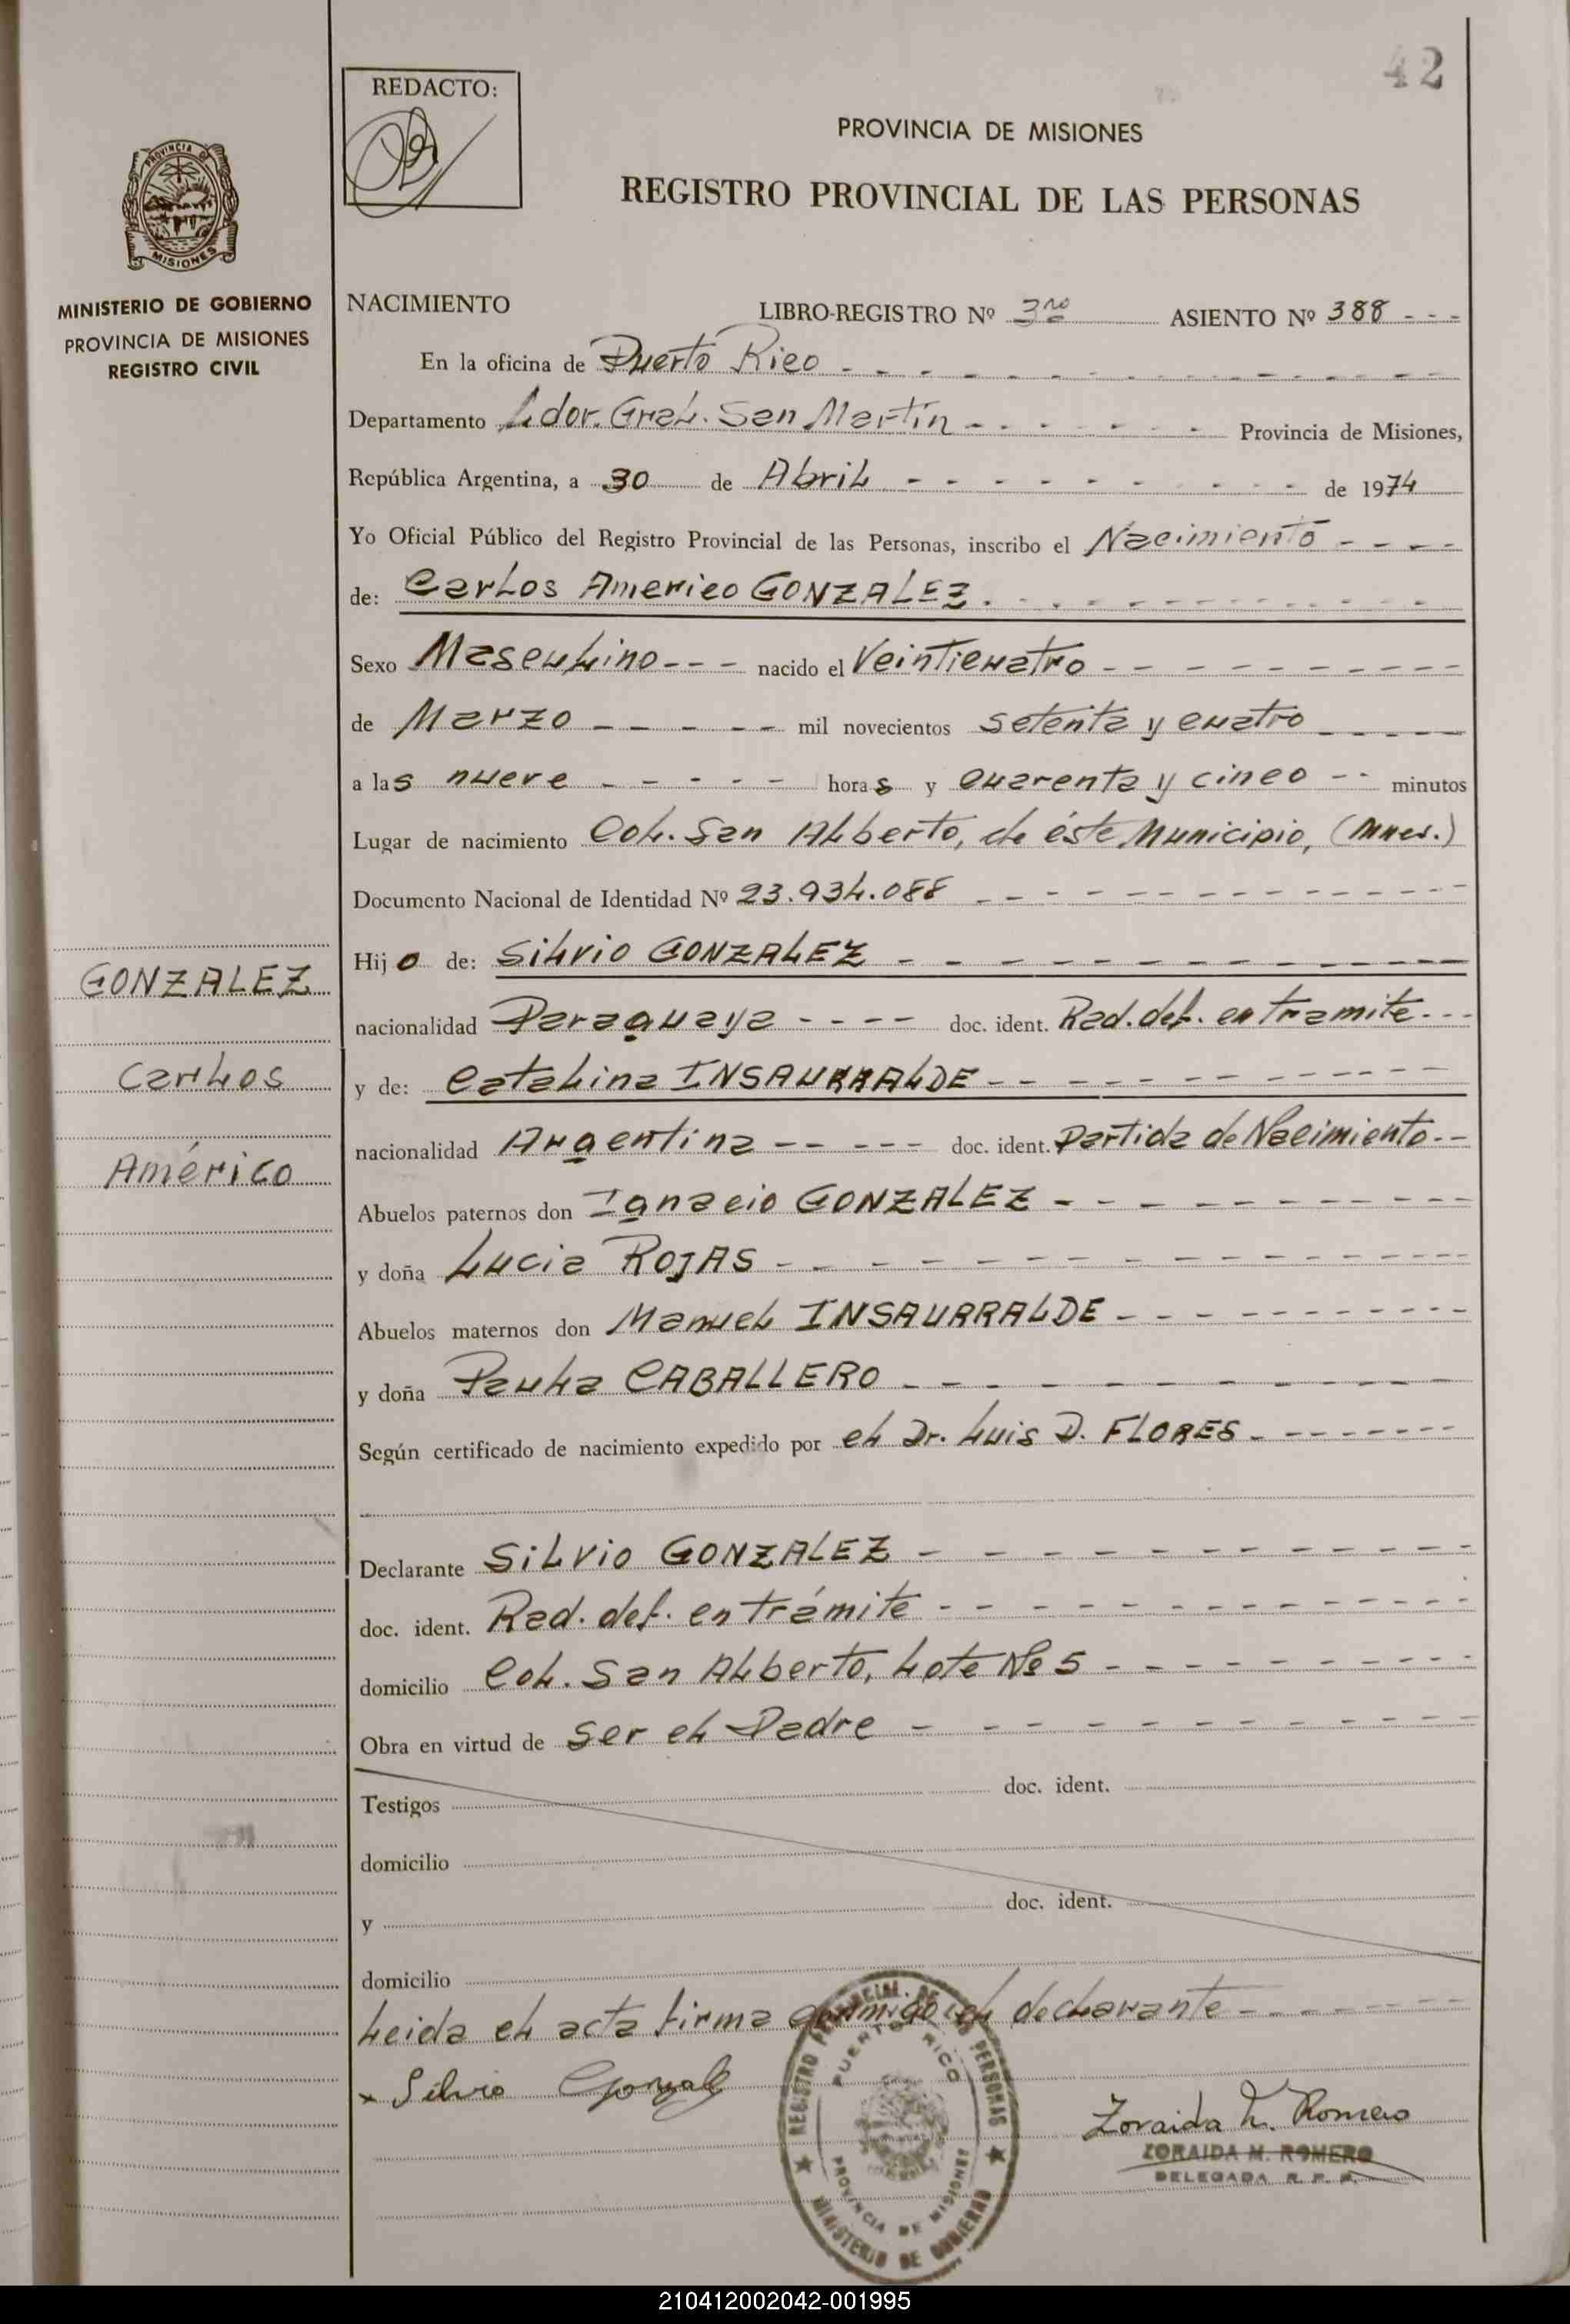 42
REDACTO:
PROVINCIA DE MISIONES
REGISTRO PROVINCIAL DE LAS PERSONAS
PROVINCIA DE
MISIONES
MINISTERIO DE GOBIERNO
PROVINCIA DE MISIONES
REGISTRO CIVIL
NACIMIENTO LIBRO-REGISTRO Nº 3ro ASIENTO Nº 388 - - -
En la oficina de Puerto Rico
Departamento Ldor. Gral. San Martín Provincia de Misiones,
República Argentina, a 30 de Abril de 1974
Yo Oficial Público del Registro Provincial de las Personas, inscribo el Nacimiento
de: Carlos Americo GONZALEZ
Sexo Masculino nacido el Veinticuatro
de Marzo mil novecientos setenta y cuatro
a las nueve horas y cuarenta y cinco minutos
Lugar de nacimiento Col. San Alberto, de éste Municipio, (Mnes.)
Documento Nacional de Identidad Nº 23.934.088
Hijo de: Silvio GONZALEZ
GONZALEZ
nacionalidad Paraguaya doc. ident. Rad. def. en tramite
Carlos
y de: Catalina INSAURRALDE
nacionalidad Argentina doc. ident. Partida de Nacimiento
Américo
Abuelos paternos don Ignacio GONZALEZ
y doña Lucia ROJAS
Abuelos maternos don Manuel INSAURRALDE
y doña Paula CABALLERO
Según certificado de nacimiento expedido por el Dr. Luis D. FLORES
Declarante Silvio GONZALEZ
doc. ident. Rad. def. en trámite
domicilio Col. San Alberto, Lote Nº 5
Obra en virtud de ser el Padre
Testigos doc. ident.
domicilio
y doc. ident.
domicilio
Leida el acta firma conmigo el declarante
x Silvio Gonzalez
REGISTRO PROVINCIAL DE LAS PERSONAS
PUERTO RICO
PROVINCIA DE MISIONES
MINISTERIO DE GOBIERNO
Zoraida M. Romero
ZORAIDA M. ROMERO
DELEGADA R. P. P.
210412002042-001995